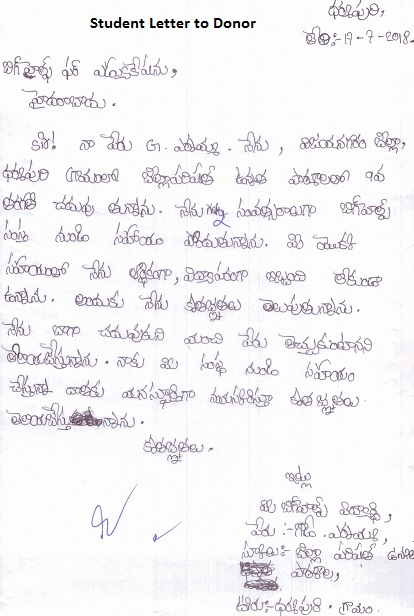 Student Letter to Donor
ధర్మపురి,
తేది:-17-7-2018.
బిగ్ హెల్ప్ ఫర్ ఎడ్యుకేషను,
హైదరాబాదు.
నా పేరు G. నేను, విజయనగరం జిల్లా,
ధర్మపురి గ్రామంలో జిల్లాపరిషత్ ఉన్నత పాఠశాలలో 9వ
తరగతి చదువు తున్నాను. నేను గత 2 సంవత్సరాలుగా బిగ్‌హెల్ప్
సంస్థ నుండి సహాయం పొందుతున్నాను. మీ యొక్క
సహాయంతో నేను ఆర్థికంగా, విద్యాపరంగా ఇబ్బంది లేకుండా
ఉన్నాను. అందుకు నేను కృతజ్ఞతలు తెలుపుతున్నాను.
నేను బాగా చదువుకుని మంచి పేరు తెచ్చుకుంటానని
తెలియజేస్తున్నాను. నాకు మీ సంస్థ నుండి సహాయం
చేస్తున్న దాతకు మనస్ఫూర్తిగా నమస్కరిస్తూ కృతజ్ఞతలు
తెలియజేస్తున్నాను.
కృతజ్ఞతలు.
ఇట్లు
మీ బిగ్‌హెల్ప్ విద్యార్థి,
పేరు :-
స్కూలు:- జిల్లా పరిషత్ ఉన్నత
పాఠశాల,
ధర్మపురి - గ్రామం.